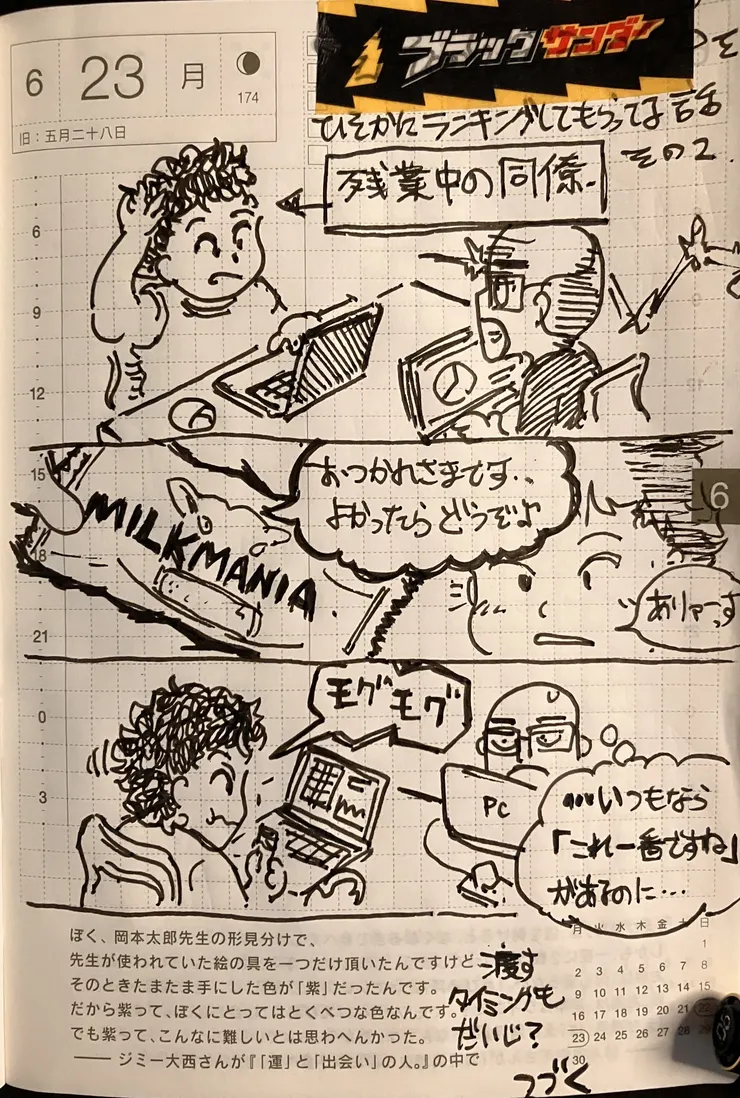 6 23 月
174
旧：五月二十八日
ブラックサンダー
ひそかにランキングしてもらってる話
その2.
残業中の同僚
6
9
12
15
18
21
0
3
おつかれさまです..
よかったらどうぞ
MILKMANIA
ありゃーっす
6
モグモグ
PC
...いつもなら
「これ一番ですね」
があるのに...
ぼく、岡本太郎先生の形見分けで、
先生が使われていた絵の具を一つだけ頂いたんですけど、
そのときたまたま手にした色が「紫」だったんです。
だから紫って、ぼくにとってはとくべつな色なんです。
でも紫って、こんなに難しいとは思わへんかった。
—— ジミー大西さんが『「運」と「出会い」の人。』の中で
渡す
タイミングも
だいじ？
つづく
月 火 水 木 金 土 日
1
2 3 4 5 6 7 8
9 10 11 12 13 14 15
16 17 18 19 20 21 22
23 24 25 26 27 28 29
30